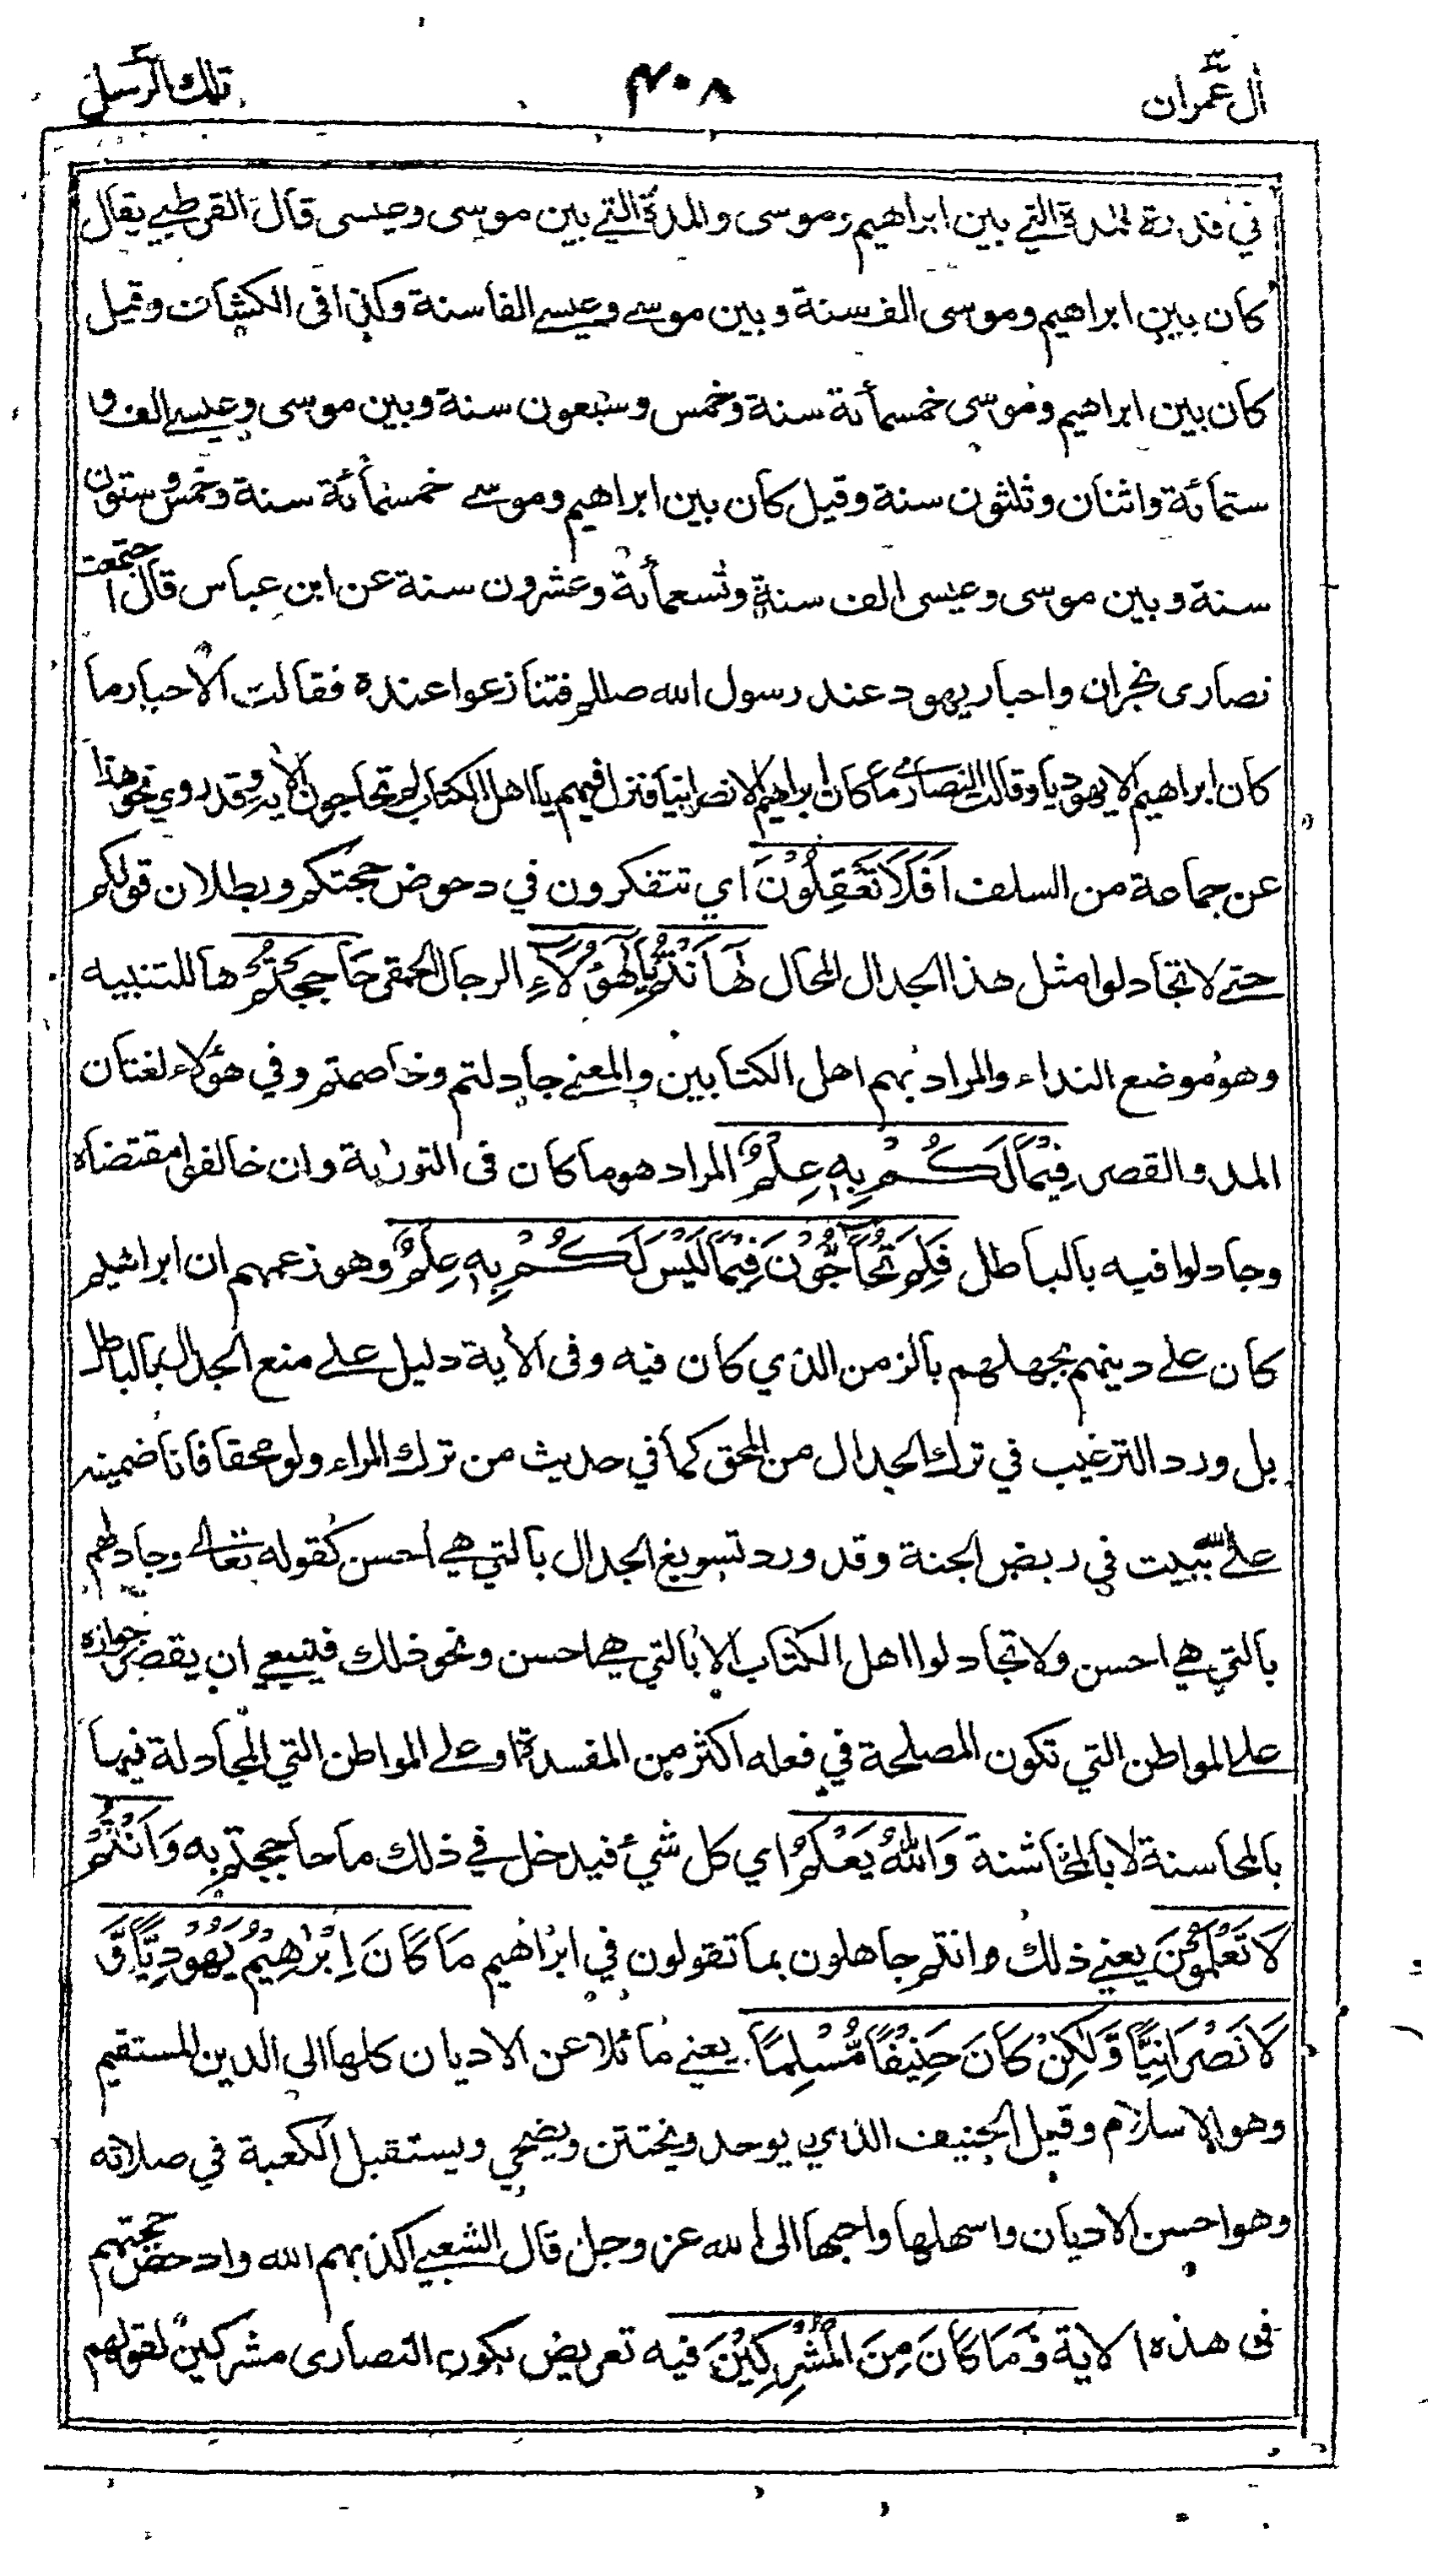 اٰل عمران
۴۰۸
تلك الرسل
في قدرة المدة التي بين ابراهيم وموسى والمدة التي بين موسى وعيسى قال القرطبي يقال
كان بين ابراهيم وموسى الف سنة وبين موسى وعيسى الفا سنة وكذا فى الكشاف وقيل
كان بين ابراهيم وموسى خمسمائة سنة وخمس وسبعون سنة وبين موسى وعيسى الف و
ستمائة واثنان وثلثون سنة وقيل كان بين ابراهيم وموسى خمسمائة سنة وخمس وستون
سنة وبين موسى وعيسى الف سنة وتسعمائة وعشرون سنة عن ابن عباس قال اجتمعت
نصارى نجران واحبار يهود عند رسول الله صللم فتنازعوا عنده فقالت الاحبار ما
كان ابراهيم الا يهوديا وقالت النصارى ما كان ابراهيم الا نصرانيا فنزل فيهم يا اهل الكتاب لم تحاجون الاٰية وقد روي نحو هذا
عن جماعة من السلف اَفَلَا تَعْقِلُوْنَ اي تتفكرون في دحوض حجتكم وبطلان قولكم
حتى لا تجادلوا مثل هذا الجدال المحال هٰٓاَنْتُمْ يا هٰٓؤُلَآءِ الرجال الحمقى حَاجَجْتُمْ ها للتنبيه
وهو موضع النداء والمراد بهم اهل الكتابين والمعنى جادلتم وخاصمتم وفي هؤلاء لغتان
المد والقصر فِيْمَا لَكُمْ بِهٖ عِلْمٌ المراد هو ما كان فى التورٰىة وان خالفوا مقتضاه
وجادلوا فيه بالباطل فَلِمَ تُحَآجُّوْنَ فِيْمَا لَيْسَ لَكُمْ بِهٖ عِلْمٌ وهو زعمهم ان ابراهيم
كان على دينهم بجهلهم بالزمن الذي كان فيه وفى الاٰية دليل على منع الجدال بالباطل
بل ورد الترغيب في ترك الجدال من المحق كما في حديث من ترك المراء ولو محقا فانا ضمينه
على الله ببيت في ربض الجنة وقد ورد تسويغ الجدال بالتي هي احسن كقوله تعالى وجادلهم
بالتي هي احسن ولا تجادلوا اهل الكتاب الا بالتي هي احسن ونحو ذلك فينبغي ان يقصر جوازه
على المواطن التي تكون المصلحة في فعله اكثر من المفسدة او على المواطن التي المجادلة فيها
بالمحاسنة لا بالمخاشنة وَاللّٰهُ يَعْلَمُ اي كل شئ فيدخل في ذلك ما حاججتم به وَاَنْتُمْ
لَا تَعْلَمُوْنَ يعني ذلك وانتم جاهلون بما تقولون في ابراهيم مَا كَانَ اِبْرٰهِيْمُ يَهُوْدِيًّا وَّ
لَا نَصْرَانِيًّا وَّلٰكِنْ كَانَ حَنِيْفًا مُّسْلِمًا يعني مائلا عن الاديان كلها الى الدين المستقيم
وهو الاسلام وقيل الحنيف الذي يوحد ويختتن ويضحي ويستقبل الكعبة في صلاته
وهو احسن الاديان واسهلها واحبها الى الله عز وجل قال الشعبي اكذبهم الله وادحض حجتهم
فى هذه الاية وَمَا كَانَ مِنَ الْمُشْرِكِيْنَ فيه تعريض بكون النصارى مشركين لقولهم